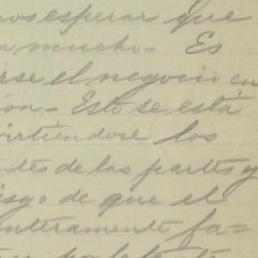 mos esperar que
a mucho- Es
irse el negocio en
ion- Esto se está
virtiendose los
ntes de las partes y
iesgo de que el
enteramente fa=